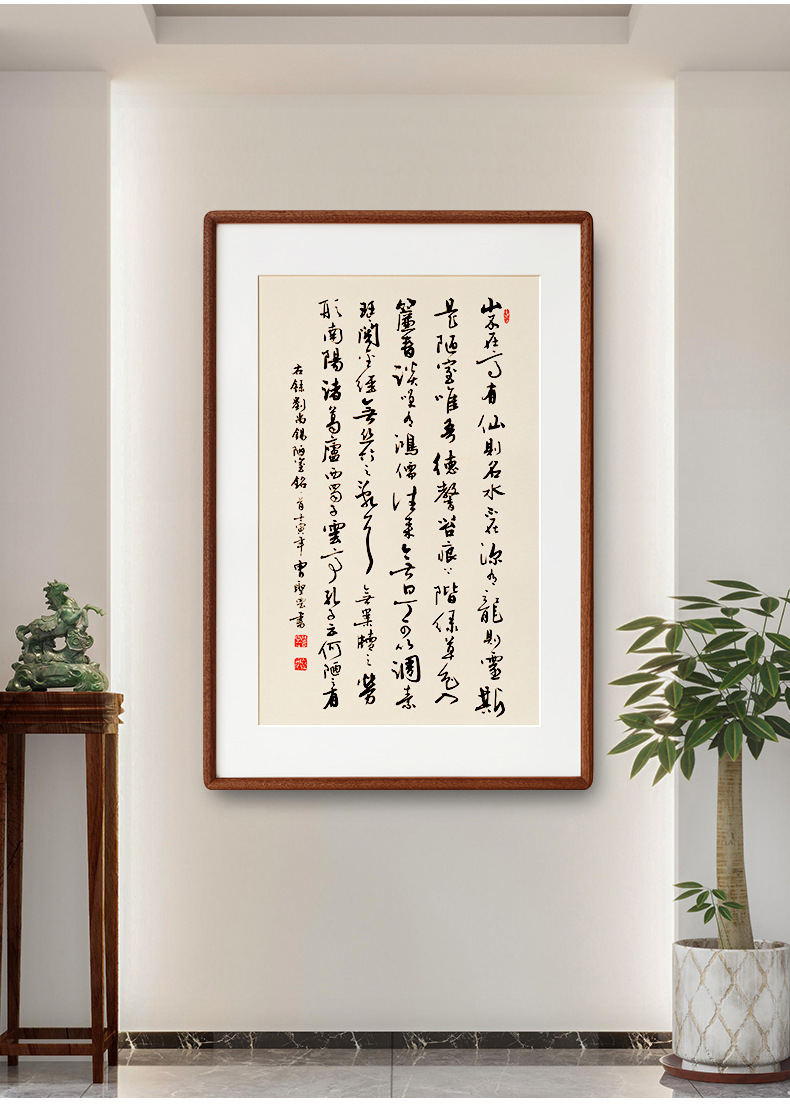 山不在高有仙則名水不在深有龍則靈斯
是陋室唯吾德馨苔痕上階綠草色入
簾青談笑有鴻儒往來無白丁可以調素
琴閱金經無絲竹之亂耳無案牘之勞
形南陽諸葛廬西蜀子雲亭孔子云何陋之有
右錄劉禹錫陋室銘 壬寅年 書